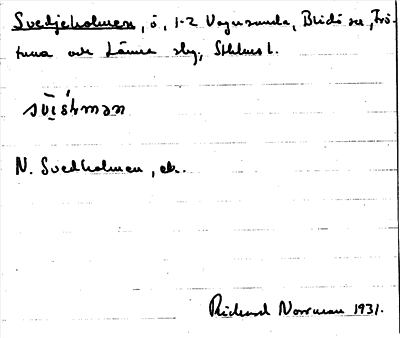 Svedjeholmen, ö, 1-2 Vagnsunda, Blidö sn, Frö-
tuna och Länna slg, Sthlms l.
N. Svedholmen, ek.
Rickard Norrman 1931.